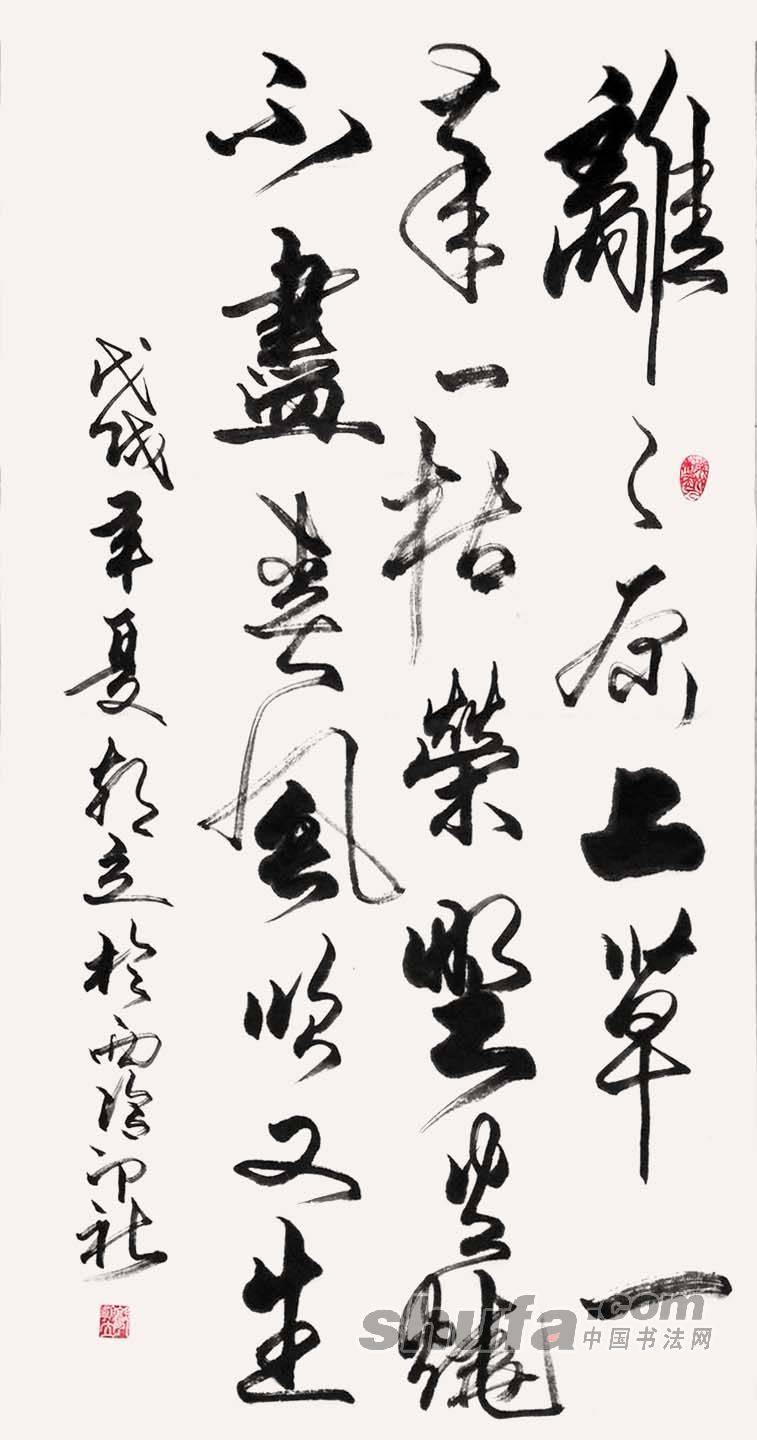 離〻原上草一
歲一枯榮野火燒
不盡春風吹又生
戊戌年夏立於西泠印社
shufa.com
中国书法网